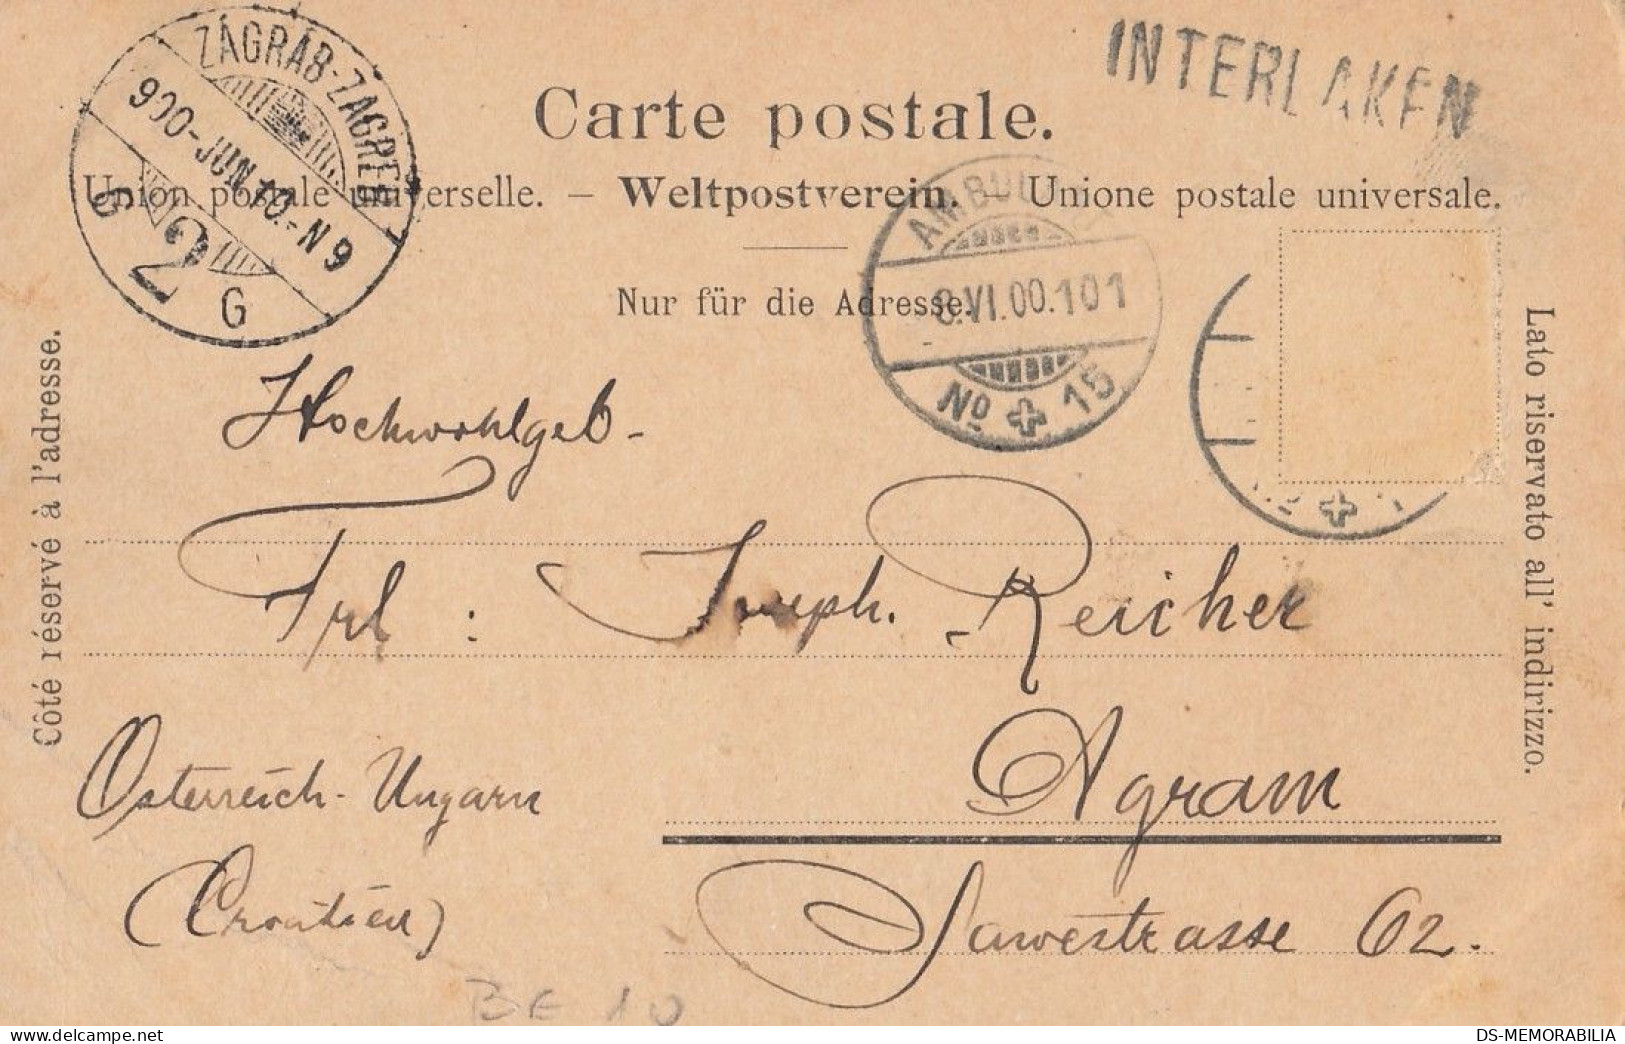 INTERLAKEN
ZÁGRÁB-ZAGREB
900-JUN.10.-N9
G 2 G
Carte postale.
Union postale universelle. — Weltpostverein. — Unione postale universale.
AMBUL
8.VI.00.101
No 15
Nur für die Adresse.
Côté réservé à l'adresse.
Lato riservato all' indirizzo.
Hochwohlgeb-
Frl : Joseph. Reicher
Agram
Österreich-Ungarn
(Croatien)
Sawestrasse 62.
BE 10
DS-MEMORABILIA